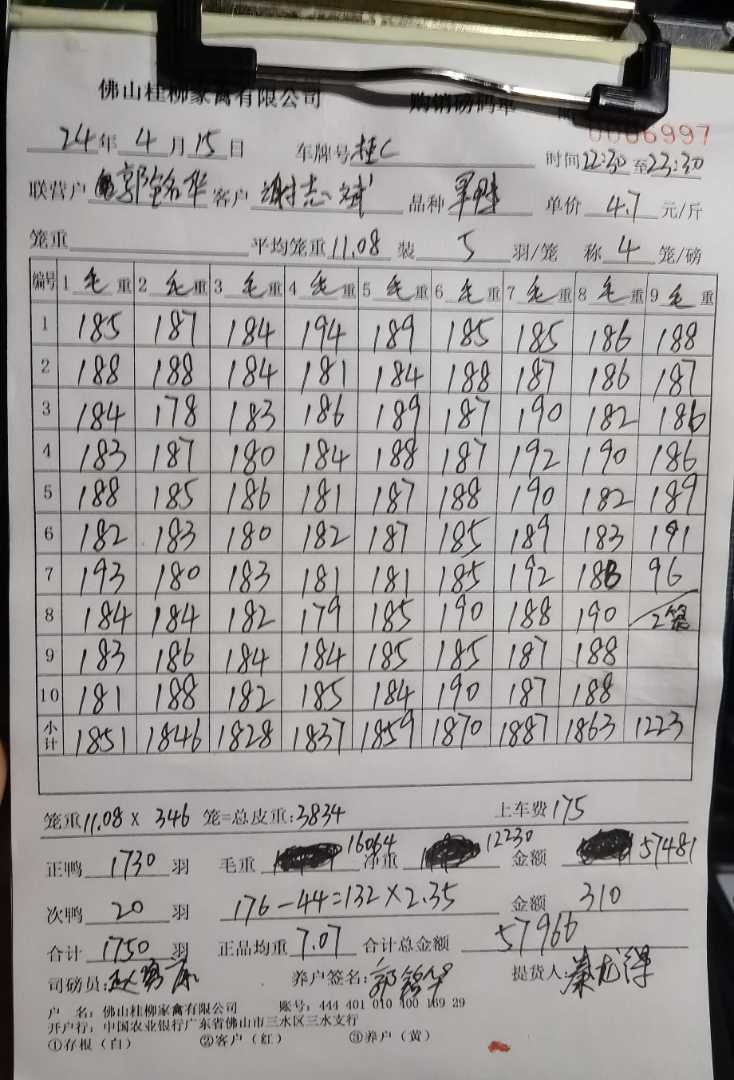 佛山桂柳家禽有限公司 购销磅码单
0006997
24年 4月15日 车牌号桂C 时间22:30至23:30
联营户 郭锦华 客户 谢志斌 品种 单价 4.7 元/斤
笼重 平均笼重11.08 装 5 羽/笼 称 4 笼/磅
编号 1 毛 重 2 毛 重 3 毛 重 4 毛 重 5 毛 重 6 毛 重 7 毛 重 8 毛 重 9 毛 重
1 185 187 184 194 189 185 185 186 188
2 188 188 184 181 184 188 187 186 187
3 184 178 183 186 189 187 190 182 186
4 183 187 180 184 188 187 192 190 186
5 188 185 186 181 187 188 190 182 189
6 182 183 180 182 187 185 189 183 191
7 193 180 183 181 181 185 192 188 96
8 184 184 182 179 185 190 188 190 2笼
9 183 186 184 184 185 185 187 188
10 181 188 182 185 184 190 187 188
小计 1851 1846 1828 1837 1859 1870 1887 1863 1223
笼重11.08 X 346 笼=总皮重:3834 上车费175
正鸭 1730 羽 毛重 16064 净重 12230 金额 57481
次鸭 20 羽 176-44=132×2.35 金额 310
合计 1750 羽 正品均重 7.07 合计总金额 57966
司磅员: 养户签名: 郭锦华 提货人: 秦龙得
户 名: 佛山桂柳家禽有限公司 账号: 444 401 010 400 169 29
开户行: 中国农业银行广东省佛山市三水区三水支行
①存根(白) ②客户(红) ③养户(黄)